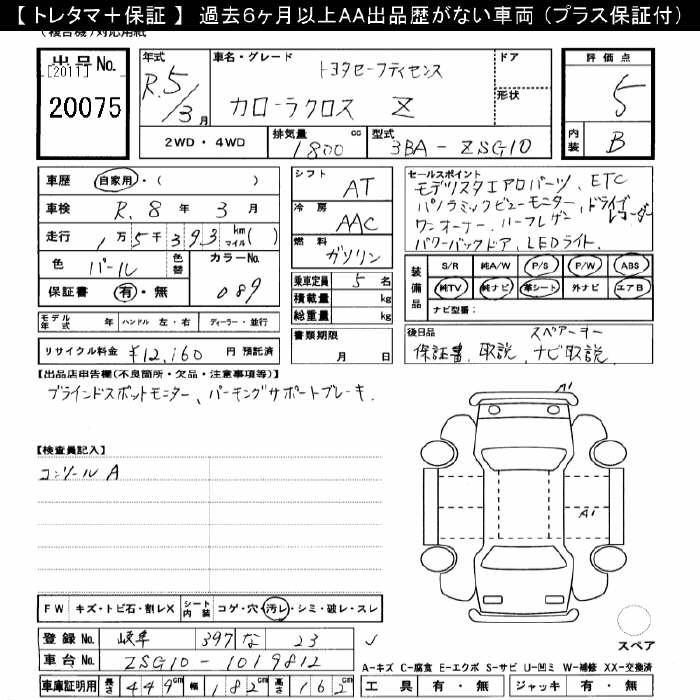 【 トレタマ＋保証 】 過去6ヶ月以上AA出品歴がない車両（プラス保証付）
(複合機)対応用紙
出品No. [2011] 20075
年式 R.5/3月
車名・グレード トヨタセーフティセンス カローラクロス Z
ドア
形状
評価点 5
内装 B
2WD・4WD
排気量 1800 cc
型式 3BA-ZSG10
車歴 自家用・( )
車検 R.8年3月
走行 1万5千393 km マイル( )
色 パール
色替
カラーNo. 089
保証書 有・無
シフト AT
冷房 AAC
燃料 ガソリン
乗車定員 5名
積載量 kg
総重量 kg
セールスポイント
モデリスタエアロパーツ、ETC
パノラミックビューモニター、ドライブレコーダー
ワンオーナー、ハーフレザー
パワーバックドア、LEDライト.
装備品
S/R 純A/W P/S P/W ABS
純TV 純ナビ 革シート 外ナビ エアB
ナビ型番：
モデル年式 年 ハンドル 左・右 ディーラー・並行
書類期限 月 日
後日品 スペアーキー
保証書、取説、ナビ取説
リサイクル料金 ¥12,160 円 預託済
【出品店申告欄(不良箇所・欠品・注意事項等)】
ブラインドスポットモニター、パーキングサポートブレーキ.
【検査員記入】
コンソール A
A1
A1
FW キズ・トビ石・割レX シート内装 コゲ・穴・汚レ・シミ・破レ・スレ
スペア
登録No. 岐阜 397 な 23
車台No. ZSG10-1019812
A-キズ C-腐食 E-エクボ S-サビ U-凹ミ W-補修 XX-交換済
車庫証明用 長さ 449cm 幅 182cm 高さ 162cm
工具 有・無 ジャッキ 有・無